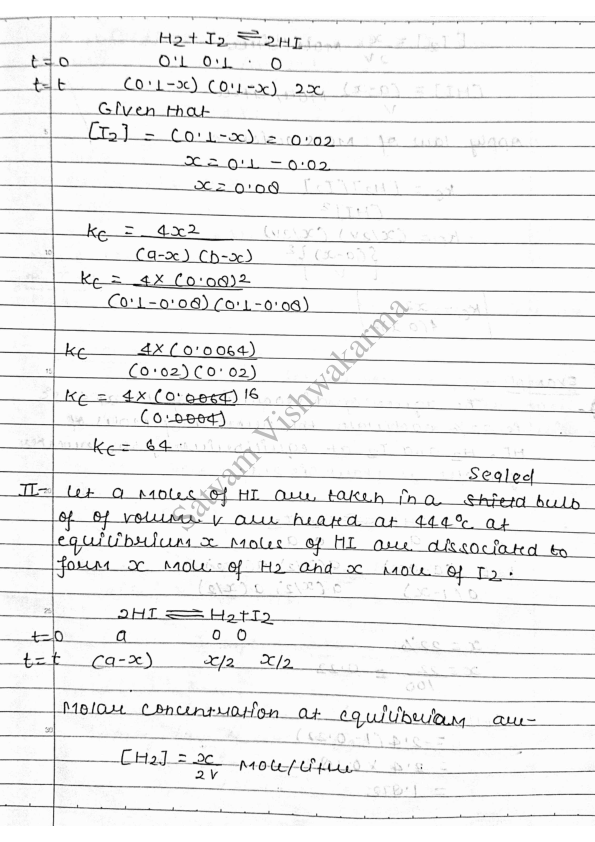 H2 + I2 ⇌ 2HI
t=0 0.1 0.1 . 0
t=t (0.1-x) (0.1-x) 2x
Given that
[I2] = (0.1-x) = 0.02
x = 0.1 - 0.02
x = 0.08
Kc = 4x2
(a-x) (b-x)
Kc = 4x(0.08)2
(0.1-0.08)(0.1-0.08)
Kc 4x(0.0064)
(0.02)(0.02)
Kc = 4x(0.0064) 16
(0.0004)
Kc = 64.
Sealed
II- Let a moles of HI are taken in a shield bulb
of of volume v are heated at 444°c at
equilibrium x moles of HI are dissociated to
form x mole of H2 and x mole of I2.
2HI ⇌ H2+I2
t=0 a 0 0
t=t (a-x) x/2 x/2
Molar concentration at equilibriam are-
[H2] = x/2v mole/litre
Satyam Vishwakarma